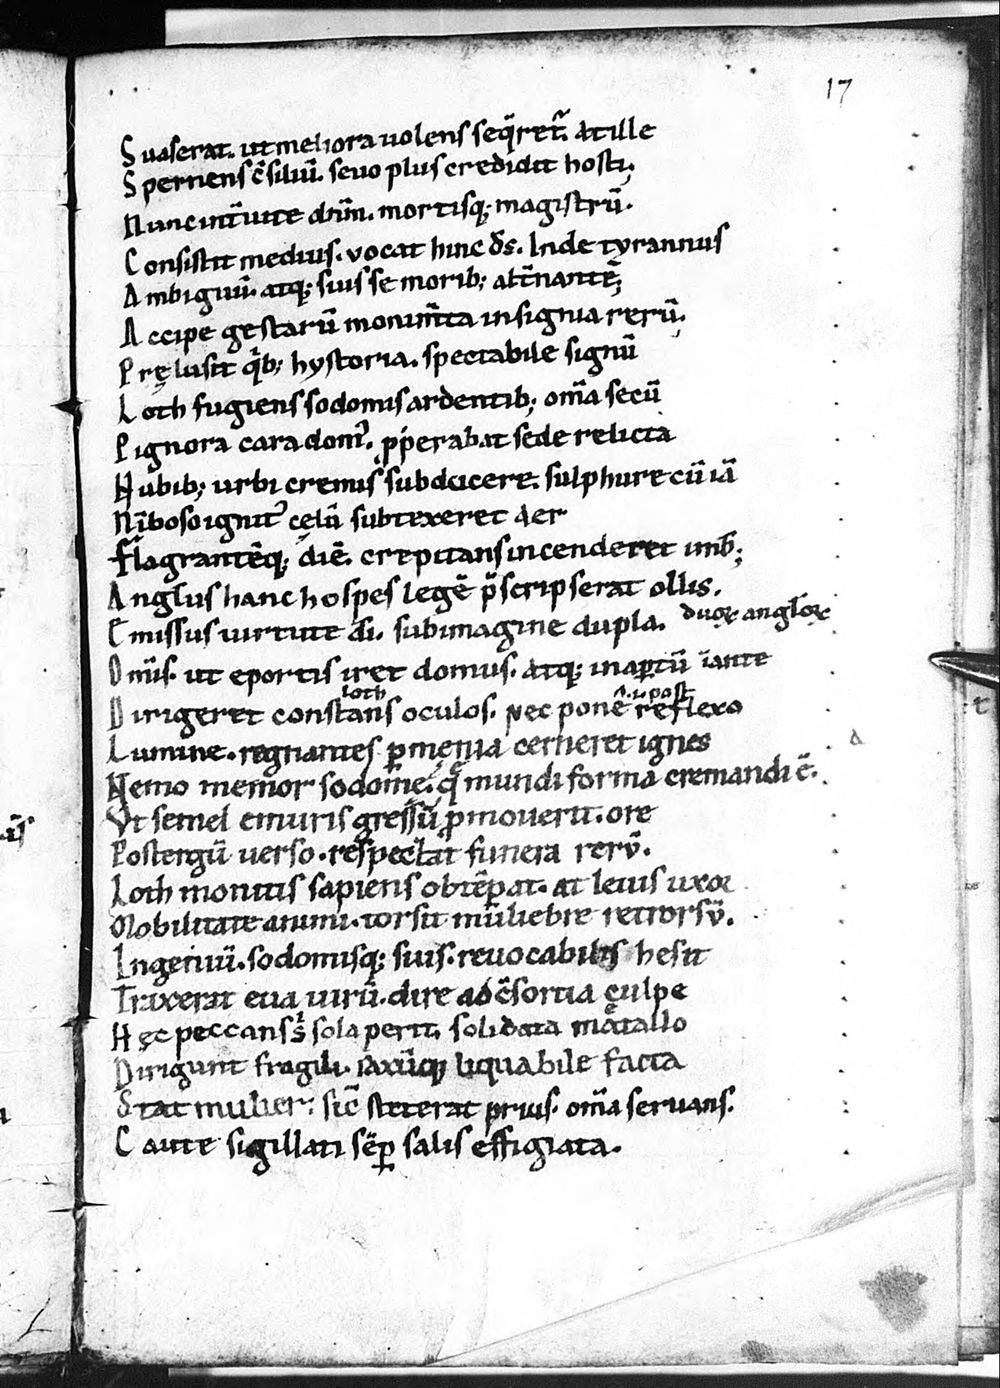 17
Suaserat. ut meliora uolens seq̃ret᷑. At ille
Spernens c̄siliū. seuo plus credidit hosti;
Nunc int̄ uite dn̄m. mortisq; magistrū.
Consistit medius. vocat hinc d̄s. Inde tyrannus
Ambiguū. atq; suis se morib; alt̄nantē;
Accipe gestarū monum̄ta insignia rerū.
Pręlusit qͥb; hystoria. spectabile signū
Loth fugiens sodomis ardentib; om̄a secū
Pignora cara domꝰ. ꝓperabat sede relicta
Nubib; urbi cremis subducere. sulphure cū iā
Nīboso ignitꝰ cęlū subtexeret aer
Flagrantēq; diē. crepitans incenderet imb̄;
Anglus hanc hospes legē p̄scripserat ollis.
Emissus uirtute dī. sub imagine dupla. duoꝝ angloꝝ
Om̄is. ut e portis iret domus. atq; in aꝑtū
loth
Dirigeret constans oculos. Nec ponē reflexo
Lumine. regnantes ꝑ męnia cerneret ignes
Nemo memor sodomę. q̄ mundi forma cremandi ē.
Vt semel e muris gressū ꝓmouerit. ore
Postergū uerso. respectat funera rerū.
Loth monitis sapiens obtēꝑat. at leuis uxor
Mobilitate animi. torsit muliebre retrorsū.
Ingeniū. sodomisq; suis. reuocabilis hesit
Traxerat eua uirū. dire ad c̄sortia culpe
Hęc peccans s; sola perit. solidata metallo
Dirigunt fragili. saxūq; liquabile facta
Stat mulier: sic̄ steterat prius. om̄a seruans.
Caute sigillati sēꝑ salis effigiata.